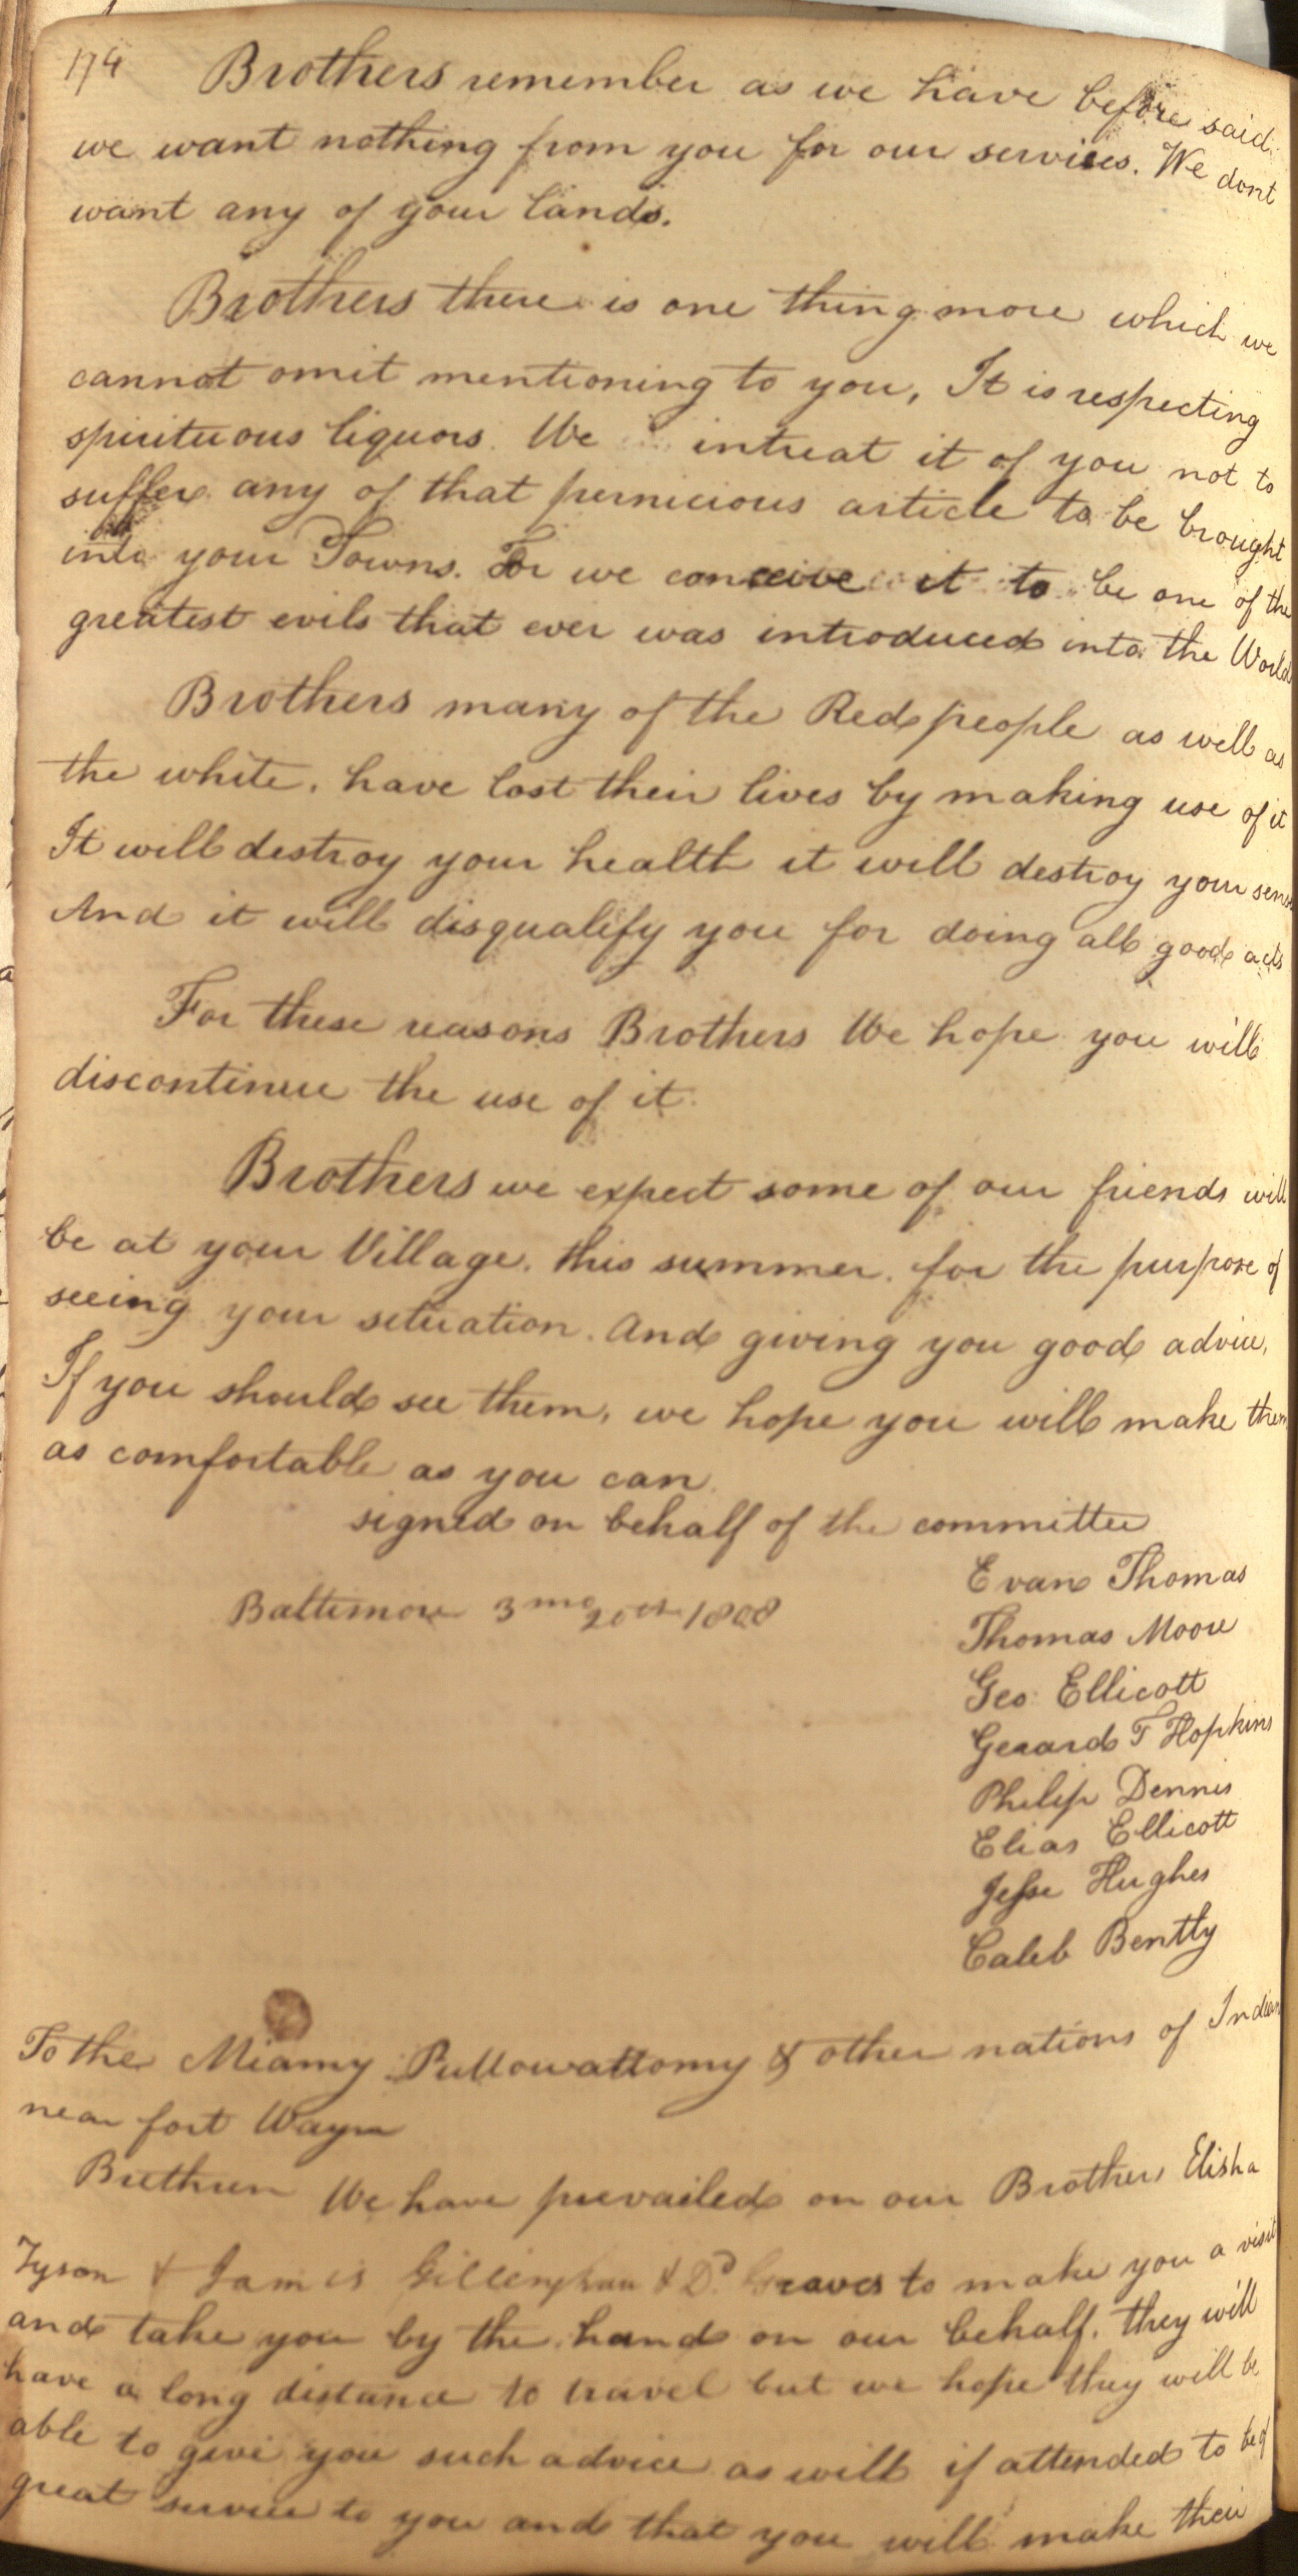 174 Brothers remember as we have before said
we want nothing from you for our services. We dont
want any of your lands.
Brothers there is one thing more which we
cannot omit mentioning to you, It is respecting
spirituous liquors. We intreat it of you not to
suffer any of that pernicious article to be brought
into your Towns. For we conceive it to be one of the
greatest evils that ever was introduced into the World
Brothers many of the Red people as well as
the white, have lost their lives by making use of it
It will destroy your health it will destroy your sense
And it will disqualify you for doing all good acts
For these reasons Brothers We hope you will
discontinue the use of it.
Brothers we expect some of our friends will
be at your Village, this summer, for the purpose of
seeing your situation. And giving you good advice,
If you should see them, we hope you will make them
as comfortable as you can
signed on behalf of the committee
Evan Thomas
Baltimore 3mo 20th 1808
Thomas Moore
Geo Ellicott
Gerard T Hopkins
Philip Dennis
Elias Ellicott
Jesse Hughes
Caleb Bently
To the Miamy Puttowattomy & other nations of Indians
near fort Wayn
Brethren We have prevailed on our Brothers Elisha
Tyson & James Gillingham & Dd Graves to make you a visit
and take you by the hand on our behalf. they will
have a long distance to travel but we hope they will be
able to give you such advice as will if attended to be of
great service to you and that you will make their